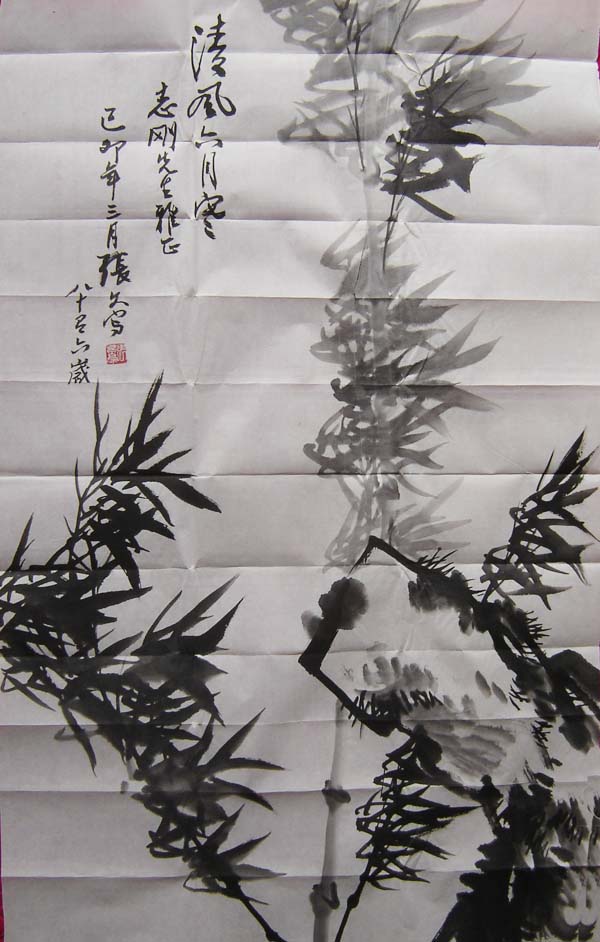 清风六月寒
志刚先生雅正
己卯年三月張文写
八十有六歲